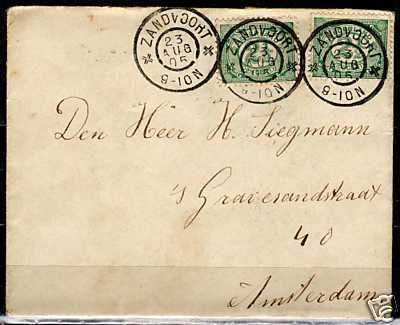 ZANDVOORT
23
AUG
05
8-10N
ZANDVOORT
23
AUG
05
8-10N
ZANDVOORT
23
AUG
05
8-10N
Den Heer H. Siegmann
's Gravesandstraat
40
Amsterdam